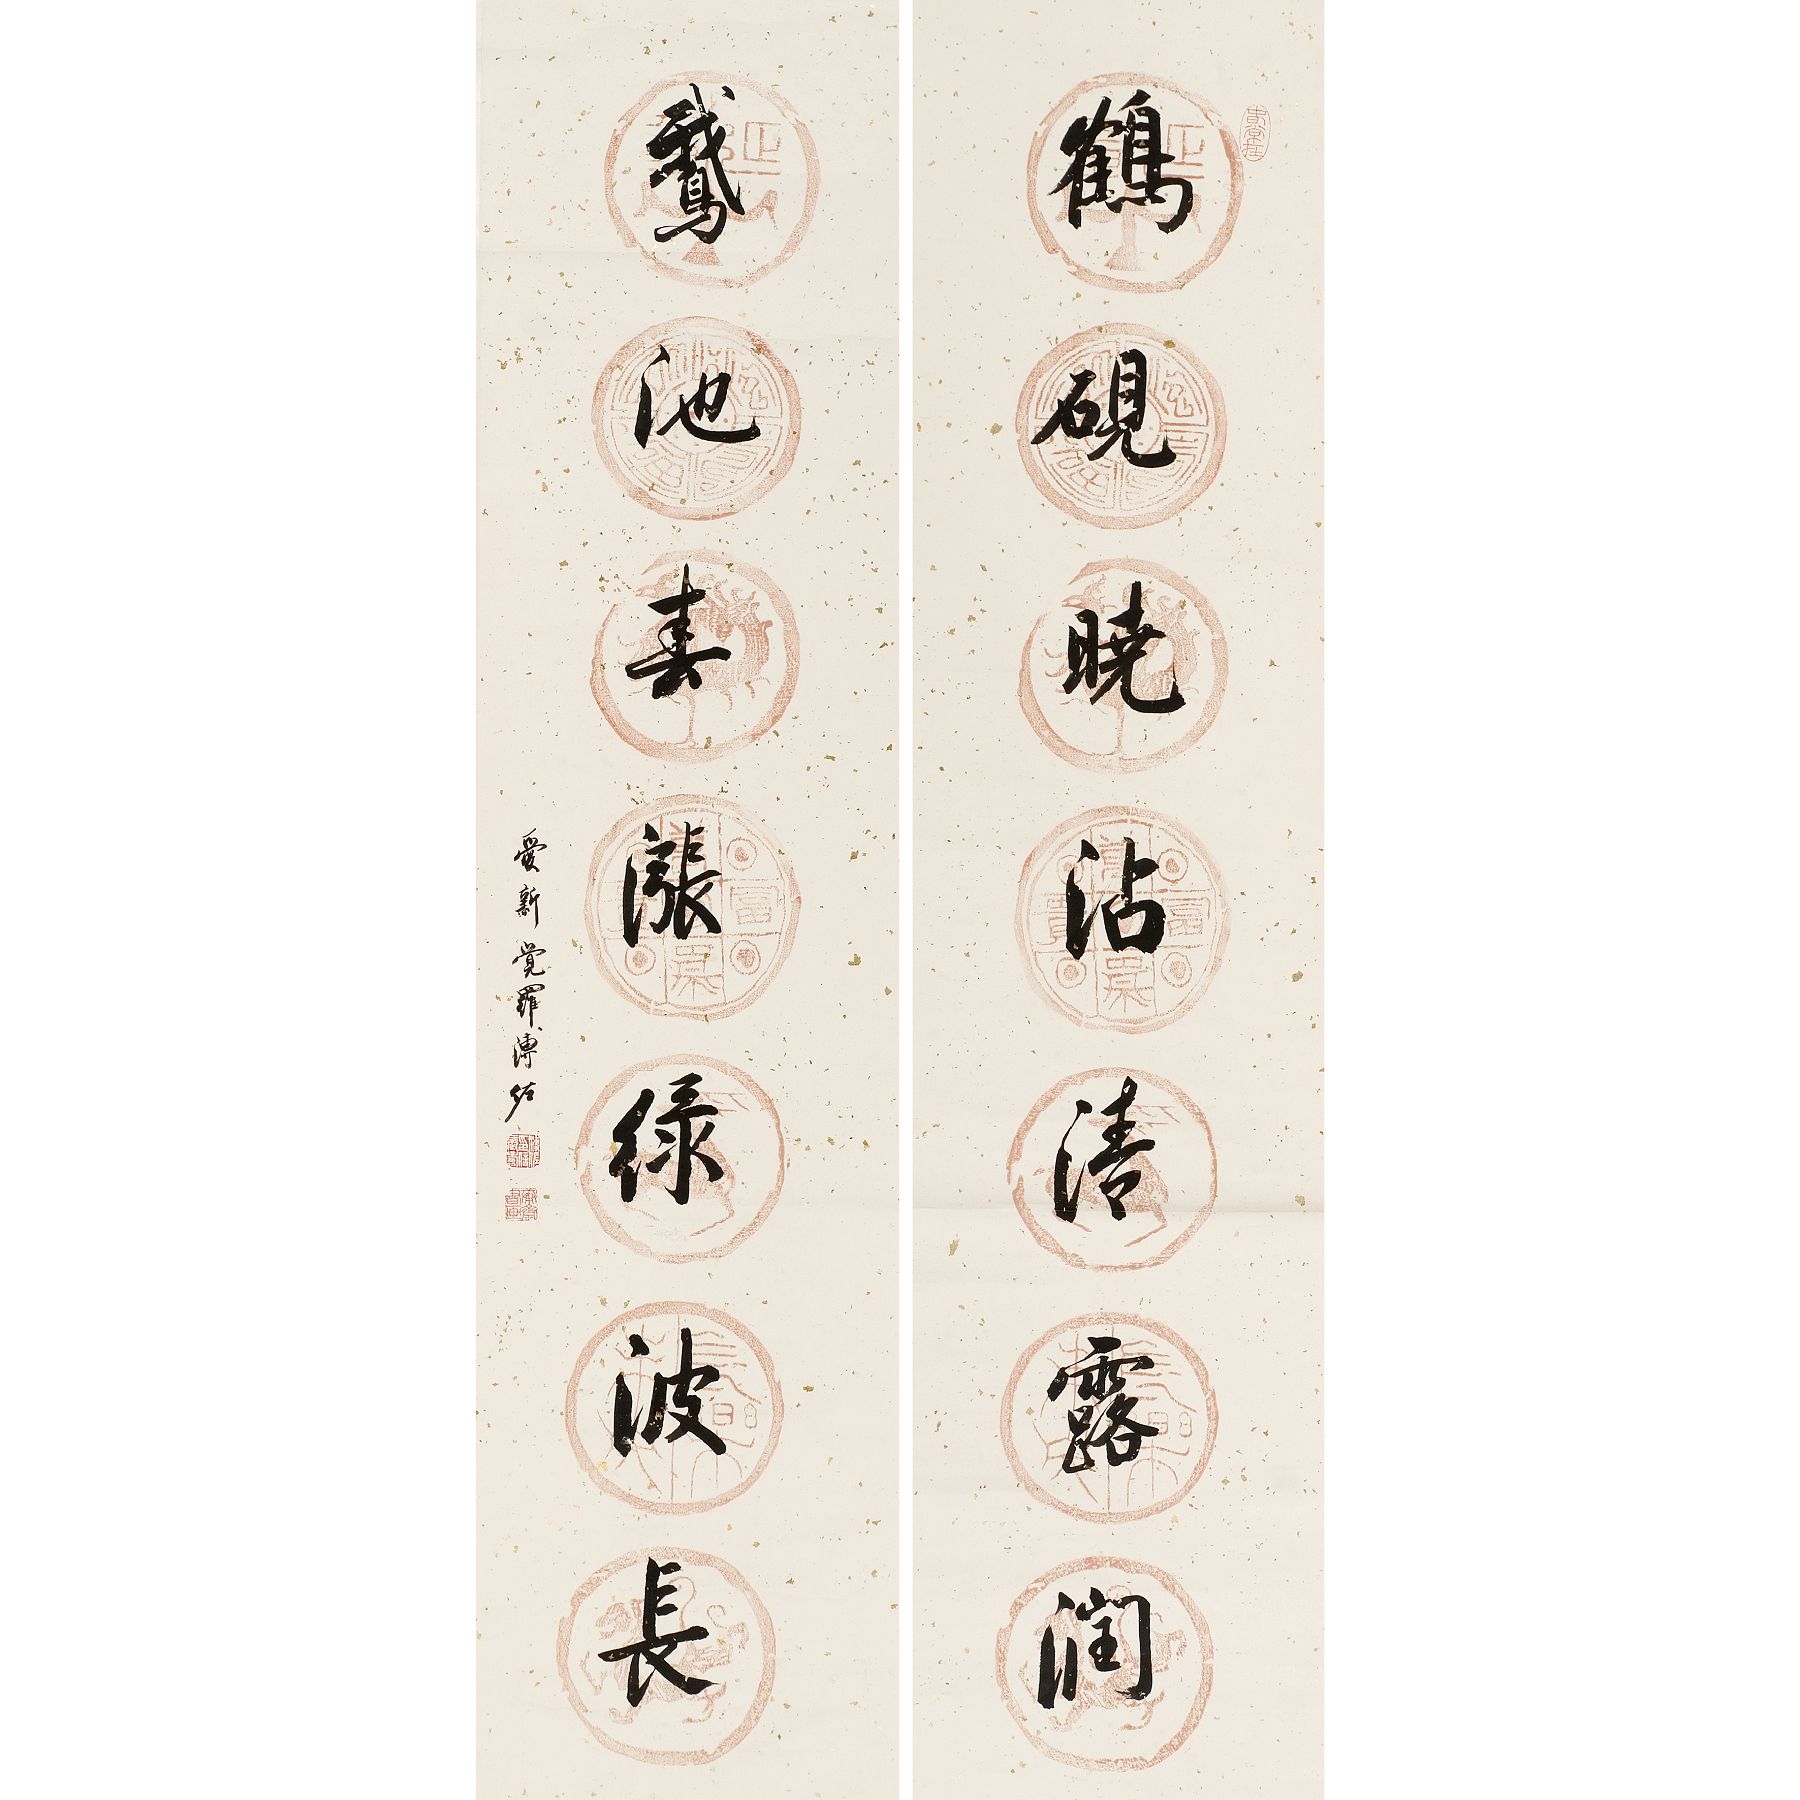 鶴硯曉沾清露潤
鵞池春漲緑波長
愛新覺羅溥佐